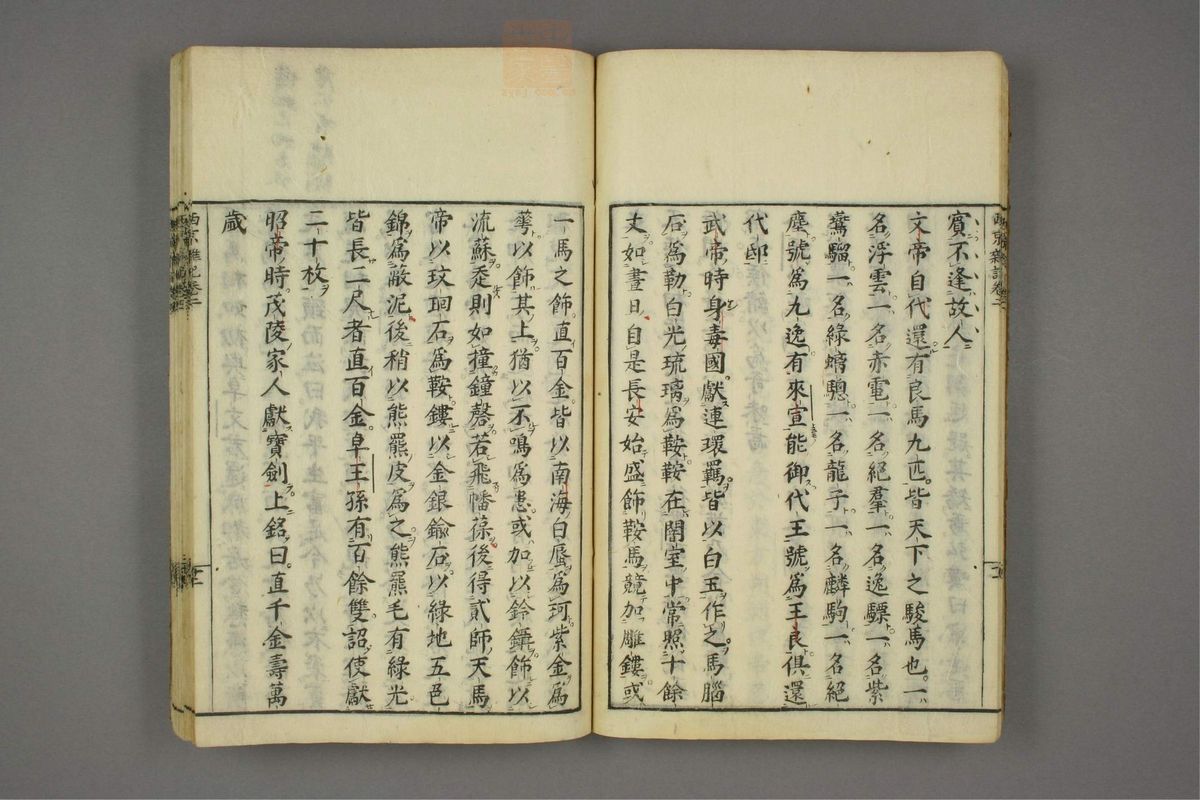 賓不逢故人
文帝自代還有良馬九匹皆天下之駿馬也一
名浮雲一名赤電一名絕羣一名逸驃一名紫
鷰騮一名綠螭驄一名龍子一名麟駒一名絕
塵號為九逸有來宣能御代王號為王良俱還
代邸
武帝時身毒國獻連環羈皆以白玉作之馬腦
石為勒白光琉璃為鞍鞍在闇室中常照十餘
丈如晝日自是長安始盛飾鞍馬競加雕鏤或
一馬之飾直百金皆以南海白蜃為珂紫金為
蕚以飾其上猶以不鳴為患或加以鈴鑷飾以
流蘇走則如撞鐘磬若飛幡葆後得貳師天馬
帝以玟瑰石為鞍鏤以金銀鍮石以綠地五色
錦為蔽泥後稍以熊羆皮為之熊羆毛有綠光
皆長二尺者直百金卓王孫有百餘雙詔使獻
二十枚
昭帝時茂陵家人獻寶劍上銘曰直千金壽萬
歲
西京雜記卷二
西京雜記卷二